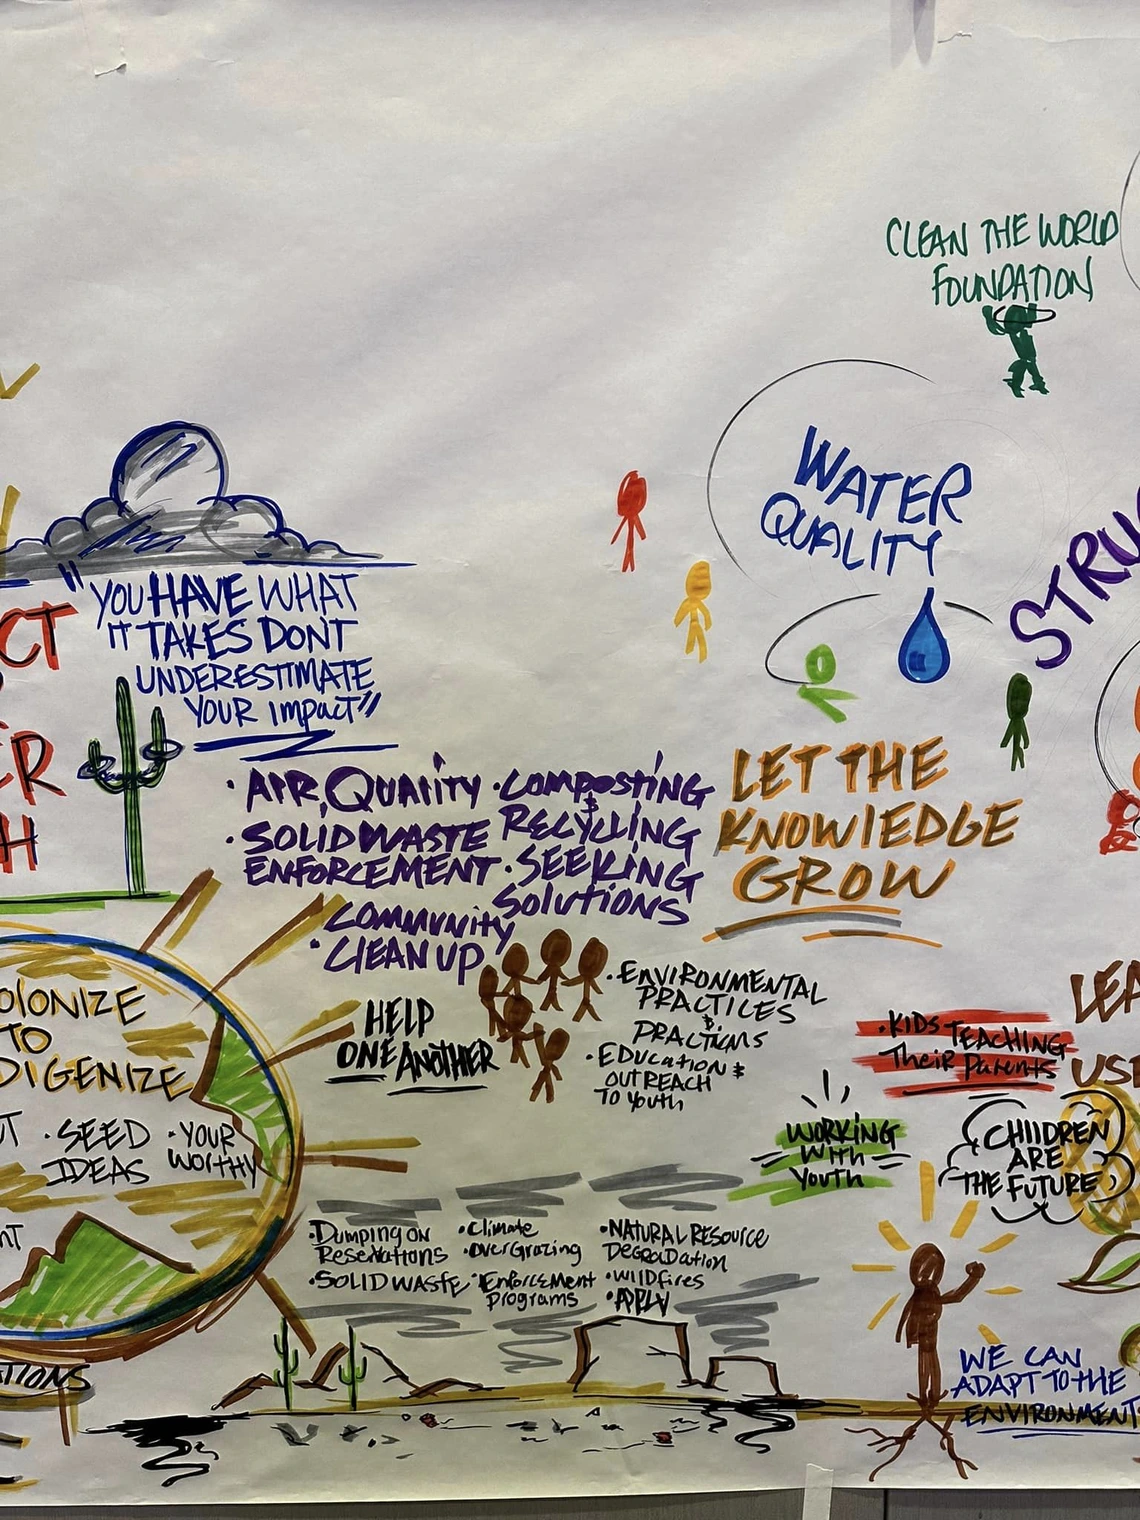 CLEAN THE WORLD
FOUNDATION
WATER
QUALITY
"YOU HAVE WHAT
IT TAKES DONT
UNDERESTIMATE
YOUR IMPACT"
• AIR QUALITY
• SOLID WASTE
ENFORCEMENT
COMMUNITY
• CLEAN UP
• COMPOSTING
&
RECYCLING
• SEEKING
SOLUTIONS
LET THE
KNOWLEDGE
GROW
HELP
ONE ANOTHER
• ENVIRONMENTAL
PRACTICES
&
• EDUCATION &
OUTREACH
TO YOUTH
• KIDS TEACHING
THEIR PARENTS
WORKING
WITH
YOUTH
CHILDREN
ARE
THE FUTURE
TO
• SEED
IDEAS
• YOUR
WORTHY
• DUMPING ON
RESERVATIONS
• SOLID WASTE
• CLIMATE
• OVERGRAZING
• ENFORCEMENT
PROGRAMS
• NATURAL RESOURCE
DEGRADATION
• WILDFIRES
WE CAN
ADAPT TO THE
ENVIRONMENT